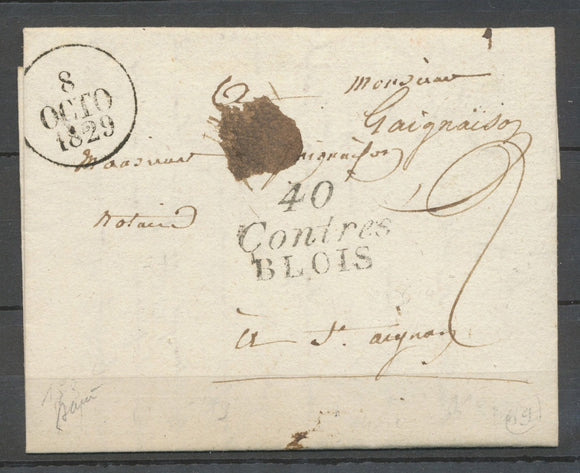 8
OCTO
1829
Monsieur
Gaignaison
Monsieur
notaire
40
Contres
BLOIS
A St. aignan